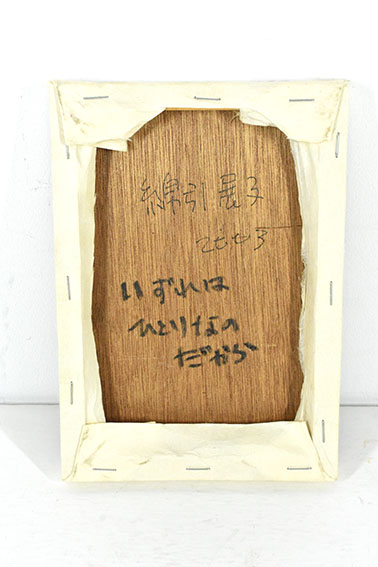 綿引展子
2003
いずれは
ひとりなの
だから